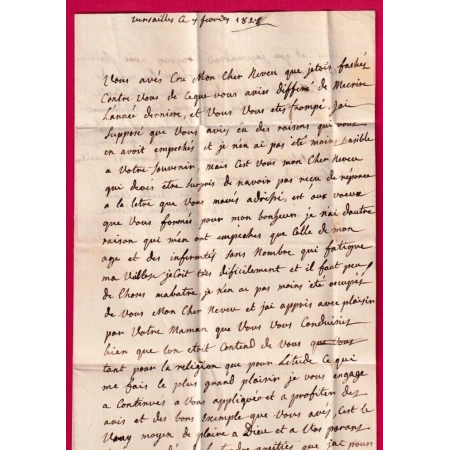 Versailles ce 7 fevrier 182
Vous avés Cru Mon Cher Neveu que jetois fachés
Contre Vous de Ceque vous aviés differé de Mecrire
Lannée derniere, et Vous Vous etes trompé, jai
Supposé que Vous aviés eu des raisons qui vous
en avoit empechés et je nén ai pas été moins sensible
a Votre Souvenir, mais Cest Vous mon Cher Neveu
qui devés être Surpris de navoir pas reçu de réponce
a la letre que Vous mavés adressé, et aux voeux
que Vous formés pour mon bonheur je nai dautre
raison qui mén ont empeches que Celle de mon
age et des infirmités sans Nombre qui fatigue
ma Villesse jeCrit très dificilement et il faut peu
de Choses mabatre je nén ai pas moins été ocupés
de Vous Mon Cher Neveu et jai appris avec plaisir
par Votre Maman que Vous Vous Conduisiés
bien que lon etoit Contend de vous que vous
tant pour la religion que pour Létude Ce qui
me fais le plus grand plaisir je vous engage
a Continués a Vous appliquée et a profiter des
avis et des bons Exemple que Vous avés, Cest le
Vray moyen de plaire a Dieu et a Vos parans
que jai pour